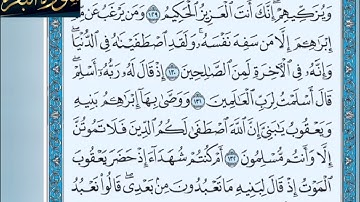 وَيُزَكِّيهِمْ ۚ إِنَّكَ أَنتَ ٱلْعَزِيزُ ٱلْحَكِيمُ ١٢٩ وَمَن يَرْغَبُ عَن مِّلَّةِ
إِبْرَٰهِـۧمَ إِلَّا مَن سَفِهَ نَفْسَهُۥ ۚ وَلَقَدِ ٱصْطَفَيْنَـٰهُ فِى ٱلدُّنْيَا ۖ
وَإِنَّهُۥ فِى ٱلْـَٔاخِرَةِ لَمِنَ ٱلصَّـٰلِحِينَ ١٣٠ إِذْ قَالَ لَهُۥ رَبُّهُۥٓ أَسْلِمْ ۖ
قَالَ أَسْلَمْتُ لِرَبِّ ٱلْعَـٰلَمِينَ ١٣١ وَوَصَّىٰ بِهَآ إِبْرَٰهِـۧمُ بَنِيهِ
وَيَعْقُوبُ يَـٰبَنِىَّ إِنَّ ٱللَّهَ ٱصْطَفَىٰ لَكُمُ ٱلدِّينَ فَلَا تَمُوتُنَّ
إِلَّا وَأَنتُم مُّسْلِمُونَ ١٣٢ أَمْ كُنتُمْ شُهَدَآءَ إِذْ حَضَرَ يَعْقُوبَ
ٱلْمَوْتُ إِذْ قَالَ لِبَنِيهِ مَا تَعْبُدُونَ مِنۢ بَعْدِى قَالُوا۟ نَعْبُدُ